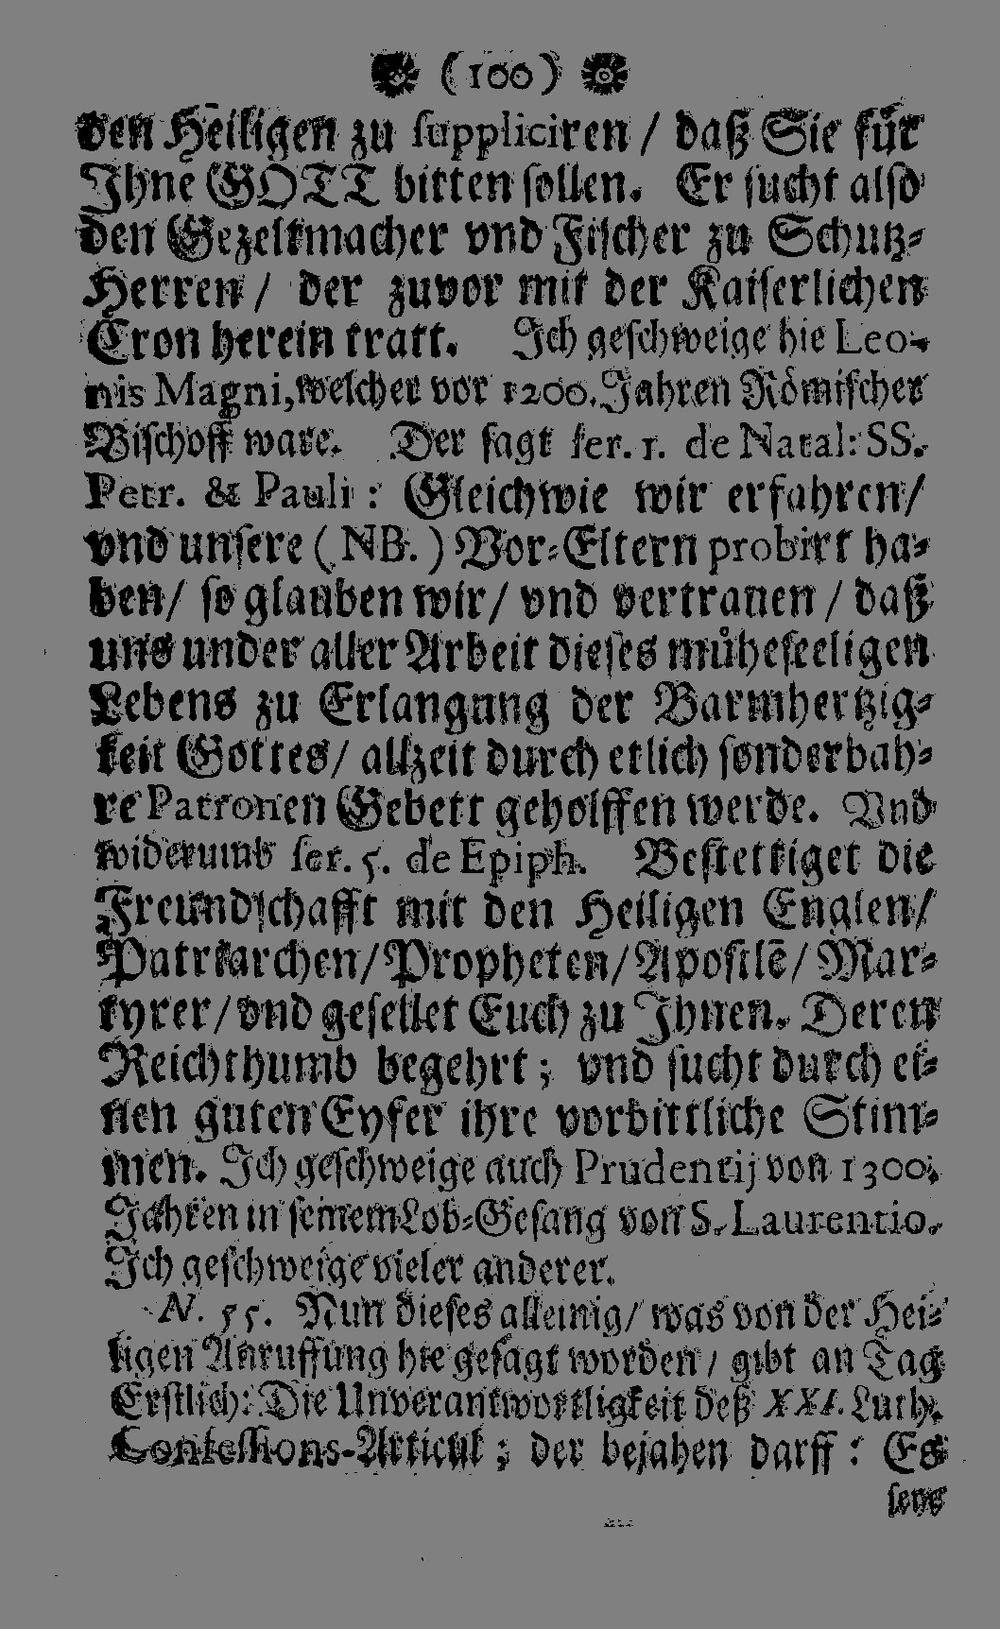 (100)
den Heiligen zu suppliciren / daß Sie für
Ihne GOTT bitten sollen. Er sucht also
den Gezeltmacher vnd Fischer zu Schutz-
Herren / der zuvor mit der Kaiserlichen
Cron herein tratt. Ich geschweige hie Leo-
nis Magni, welcher vor 1200. Jahren Römischer
Bischoff ware. Der sagt ser. 1. de Natal: SS.
Petr. & Pauli: Gleichwie wir erfahren/
vnd unsere (NB.) Vor-Eltern probirt ha-
ben/ so glauben wir/ vnd vertrauen / daß
uns under aller Arbeit dieses můheseeligen
Lebens zu Erlangung der Barmhertzig-
keit Gottes/ allzeit durch etlich sonderbah-
re Patronen Gebett geholffen werde. Vnd
widerumb ser. 5. de Epiph. Bestettiget die
Freundschafft mit den Heiligen Englen/
Patriarchen/ Propheten/ Apostlē/ Mar-
tyrer/ vnd gesellet Euch zu Ihnen. Deren
Reichthumb begehrt; vnd sucht durch ei-
nen guten Eyfer ihre vorbittliche Stim-
men. Ich geschweige auch Prudentij von 1300.
Jahren in seinem Lob-Gesang von S. Laurentio.
Ich geschweige vieler anderer.
N. 55. Nun dieses alleinig/ was von der Hei-
ligen Anruffung hie gesagt worden / gibt an Tag
Erstlich: Die Unverantwortligkeit deß XXI. Luth.
Confessions-Articul; der bejahen darff: Es
seye